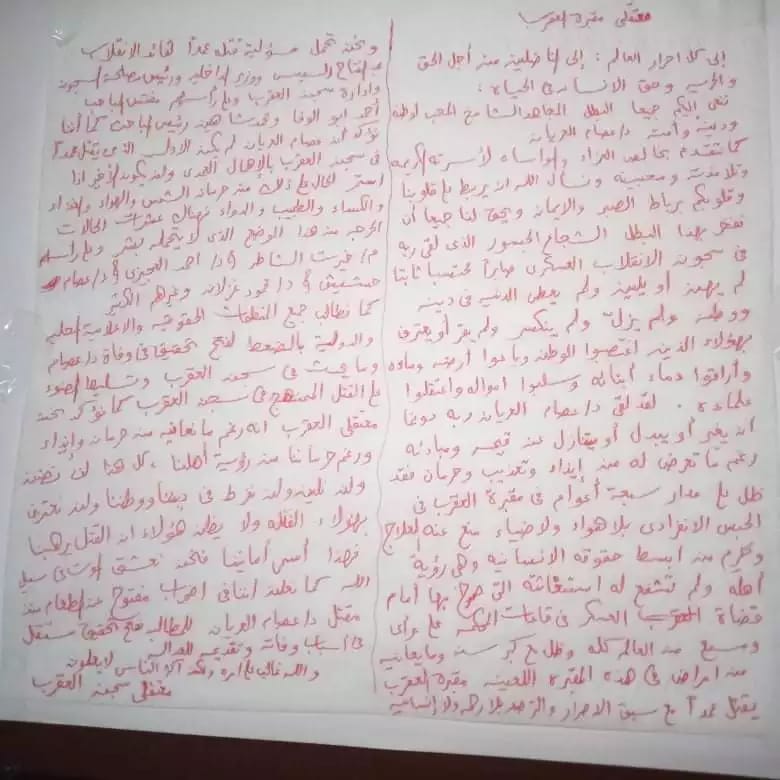 معتقلى مقبرة العقرب
إلى كل احرار العالم : إلى المناضلين من أجل الحق
والحرية وحق الانسان فى الحياة :
ننعى اليكم جميعا البطل المجاهد الشامخ المحب لوطنه
ودينه وأمته د/عصام العريان
كما نتقدم بخالص العزاء والمواساه لأسرته الكريمه
وتلامذته ومحبينه ونسأل الله ان يربط على قلوبنا
وقلوبكم برباط الصبر والايمان ويحق لنا جميعا أن
نفخر بهذا البطل الشجاع الجسور الذى لقى ربه
فى سجون الانقلاب العسكرى صابراً محتسبا ثابتا
لم يهن أو يلين ولم يعطى الدنيه فى دينه
ووطنه ولم يزل ولم ينكسر ولم يقر أو يعترف
بهؤلاء الذين اغتصبوا الوطن وباعوا أرضه وماءه
وأراقوا دماء أبنائه وسلبوا امواله واعتقلوا
علماءه . لقد لقى د/عصام العريان ربه دونما
ان يغير أو يبدل أو يتنازل عن قيمه ومبادئه
رغم ما تعرض له من إيذاء وتعذيب وحرمان فقد
ظل على مدار سبعة أعوام فى مقبرة العقرب فى
الحبس الانفرادى بلا هواء ولا ضياء منع عنه العلاج
وحرم من ابسط حقوقه الانسانيه وهى رؤية
أهله ولم تشفع له استغاثته التى صرخ بها أمام
قضاة العسكر فى قاعات المحكمه على مرأى
ومسمع من العالم كله وظل مع كبر سنه وما يعانيه
من امراض فى هذه المقبره اللعينه مقبرة العقرب
يقتل عمداً مع سبق الاصرار والترصد بلا رحمه ولا إنسانيه
ونحن نحمل مسؤلية قتله عمداً لقائد الانقلاب
عبد الفتاح السيسى ووزير الداخليه ورئيس مصلحة السجون
وادارة سجن العقرب وعلى رأسهم مفتش المباحث
أحمد ابو الوفا ومحمد شاهين رئيس المباحث كما أننا
نؤكد ان عصام العريان لم يكن الاول الذى يقتل عمداً
فى سجن العقرب بالاهمال الطبى ولن يكون الأخير اذا
استمر الحال على ذلك من حرمان الشمس والهواء والغذاء
والكساء والطبيب والدواء فهناك عشرات الحالات
الحرجه من هذا الوضع الذى لا يتحمله بشر وعلى رأسهم
م/ خيرت الشاطر & د/ احمد العجيزى & د/عصام
حشيش & د/ محمود غزلان وغيرهم الكثير
كما نطالب جميع المنظمات الحقوقيه والاعلاميه المحليه
والدولية بالضغط لفتح تحقيق فى وفاة د/عصام
وما يحدث فى سجن العقرب وتسليط الضوء
على القتل الممنهج فى سجن العقرب كما نؤكد نحن
معتقلى العقرب انه رغم ما نعانيه من حرمان وإيذاء
ورغم حرماننا من رؤية أهلنا ، كل هذا لن
ولن نلين ولن نفرط فى ديننا ووطننا ولن نعترف
بهؤلاء القتله ولا يظن هؤلاء ان القتل يرهبنا
فهذا أسمى أمانينا فنحن نعشق الموت فى سبيل
الله كما نعلن اننا فى اضراب مفتوح عن الطعام منذ
مقتل د/عصام العريان للمطالبه بفتح تحقيق مستقل
فى أسباب وفاته وتقديمه للعداله
والله غالب على امره ولكن أكثر الناس لا يعلمون
معتقلى سجن العقرب